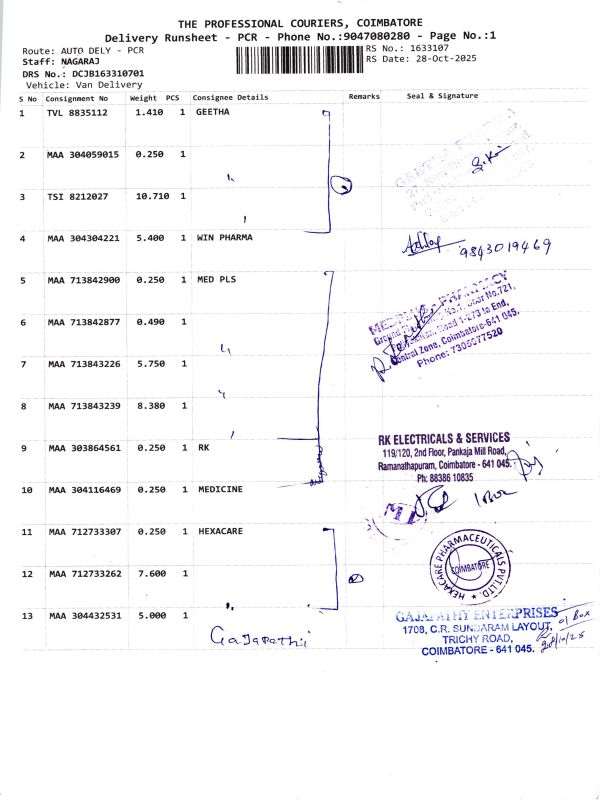 THE PROFESSIONAL COURIERS, COIMBATORE
Delivery Runsheet - PCR - Phone No.:9047080280 - Page No.:1
Route: AUTO DELY - PCR
RS No.: 1633107
Staff: NAGARAJ
RS Date: 28-Oct-2025
DRS No.: DCJB163310701
Vehicle: Van Delivery
S No Consignment No Weight PCS Consignee Details Remarks Seal & Signature
1 TVL 8835112 1.410 1 GEETHA
2 MAA 304059015 0.250 1
3 TSI 8212027 10.710 1
4 MAA 304304221 5.400 1 WIN PHARMA
9843019469
5 MAA 713842900 0.250 1 MED PLS
PHARMACY
Door No.721,
Road 1-273 to End,
Central Zone, Coimbatore-641 045.
Phone: 7305577520
6 MAA 713842877 0.490 1
7 MAA 713843226 5.750 1
8 MAA 713843239 8.380 1
9 MAA 303864561 0.250 1 RK
RK ELECTRICALS & SERVICES
119/120, 2nd Floor, Pankaja Mill Road,
Ramanathapuram, Coimbatore - 641 045.
Ph: 88386 10835
10 MAA 304116469 0.250 1 MEDICINE
1 Box
11 MAA 712733307 0.250 1 HEXACARE
HEXACARE PHARMACEUTICALS PVT.LTD.
COIMBATORE
12 MAA 712733262 7.600 1
13 MAA 304432531 5.000 1
Gajapathi
GAJAPATHY ENTERPRISES
1708, C.R. SUNDARAM LAYOUT,
TRICHY ROAD,
COIMBATORE - 641 045.
01 Box
28/10/25